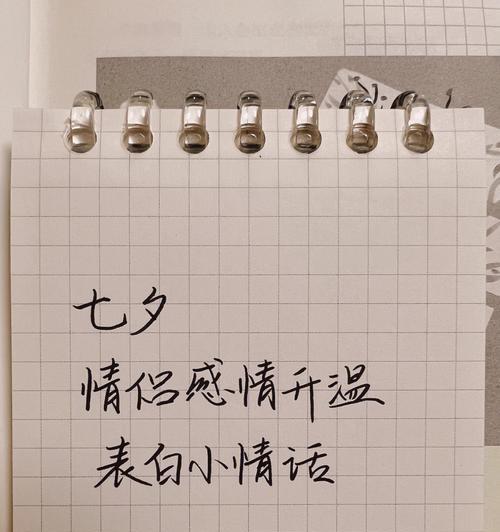 七夕
情侣感情升温
表白小情话